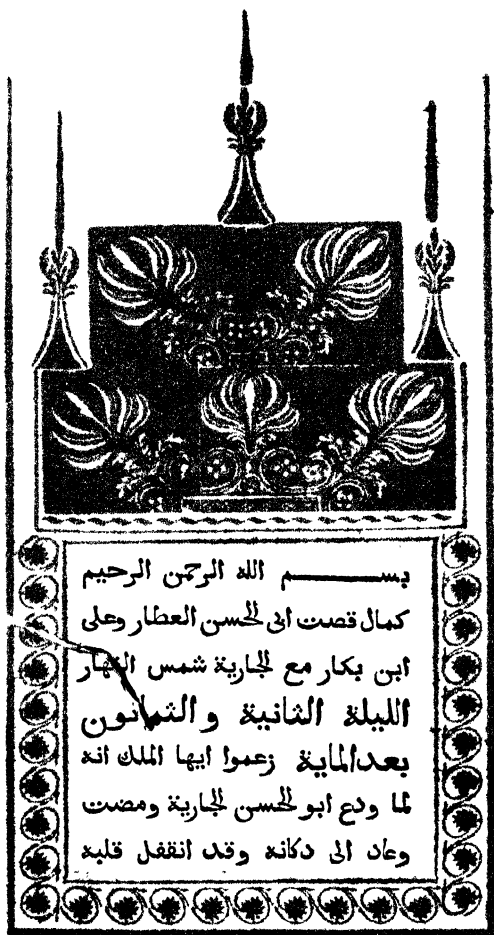 بســـــم الله الرحمن الرحيم
كمال قصت ابى الحسن العطار وعلى
ابن بكار مع الجارية شمس النهار
الليلة الثانية والثمانون
بعد الماية زعموا ايها الملك انه
لما ودع ابو الحسن الجارية ومضت
وعاد الى دكانه وقد انقفل قلبه